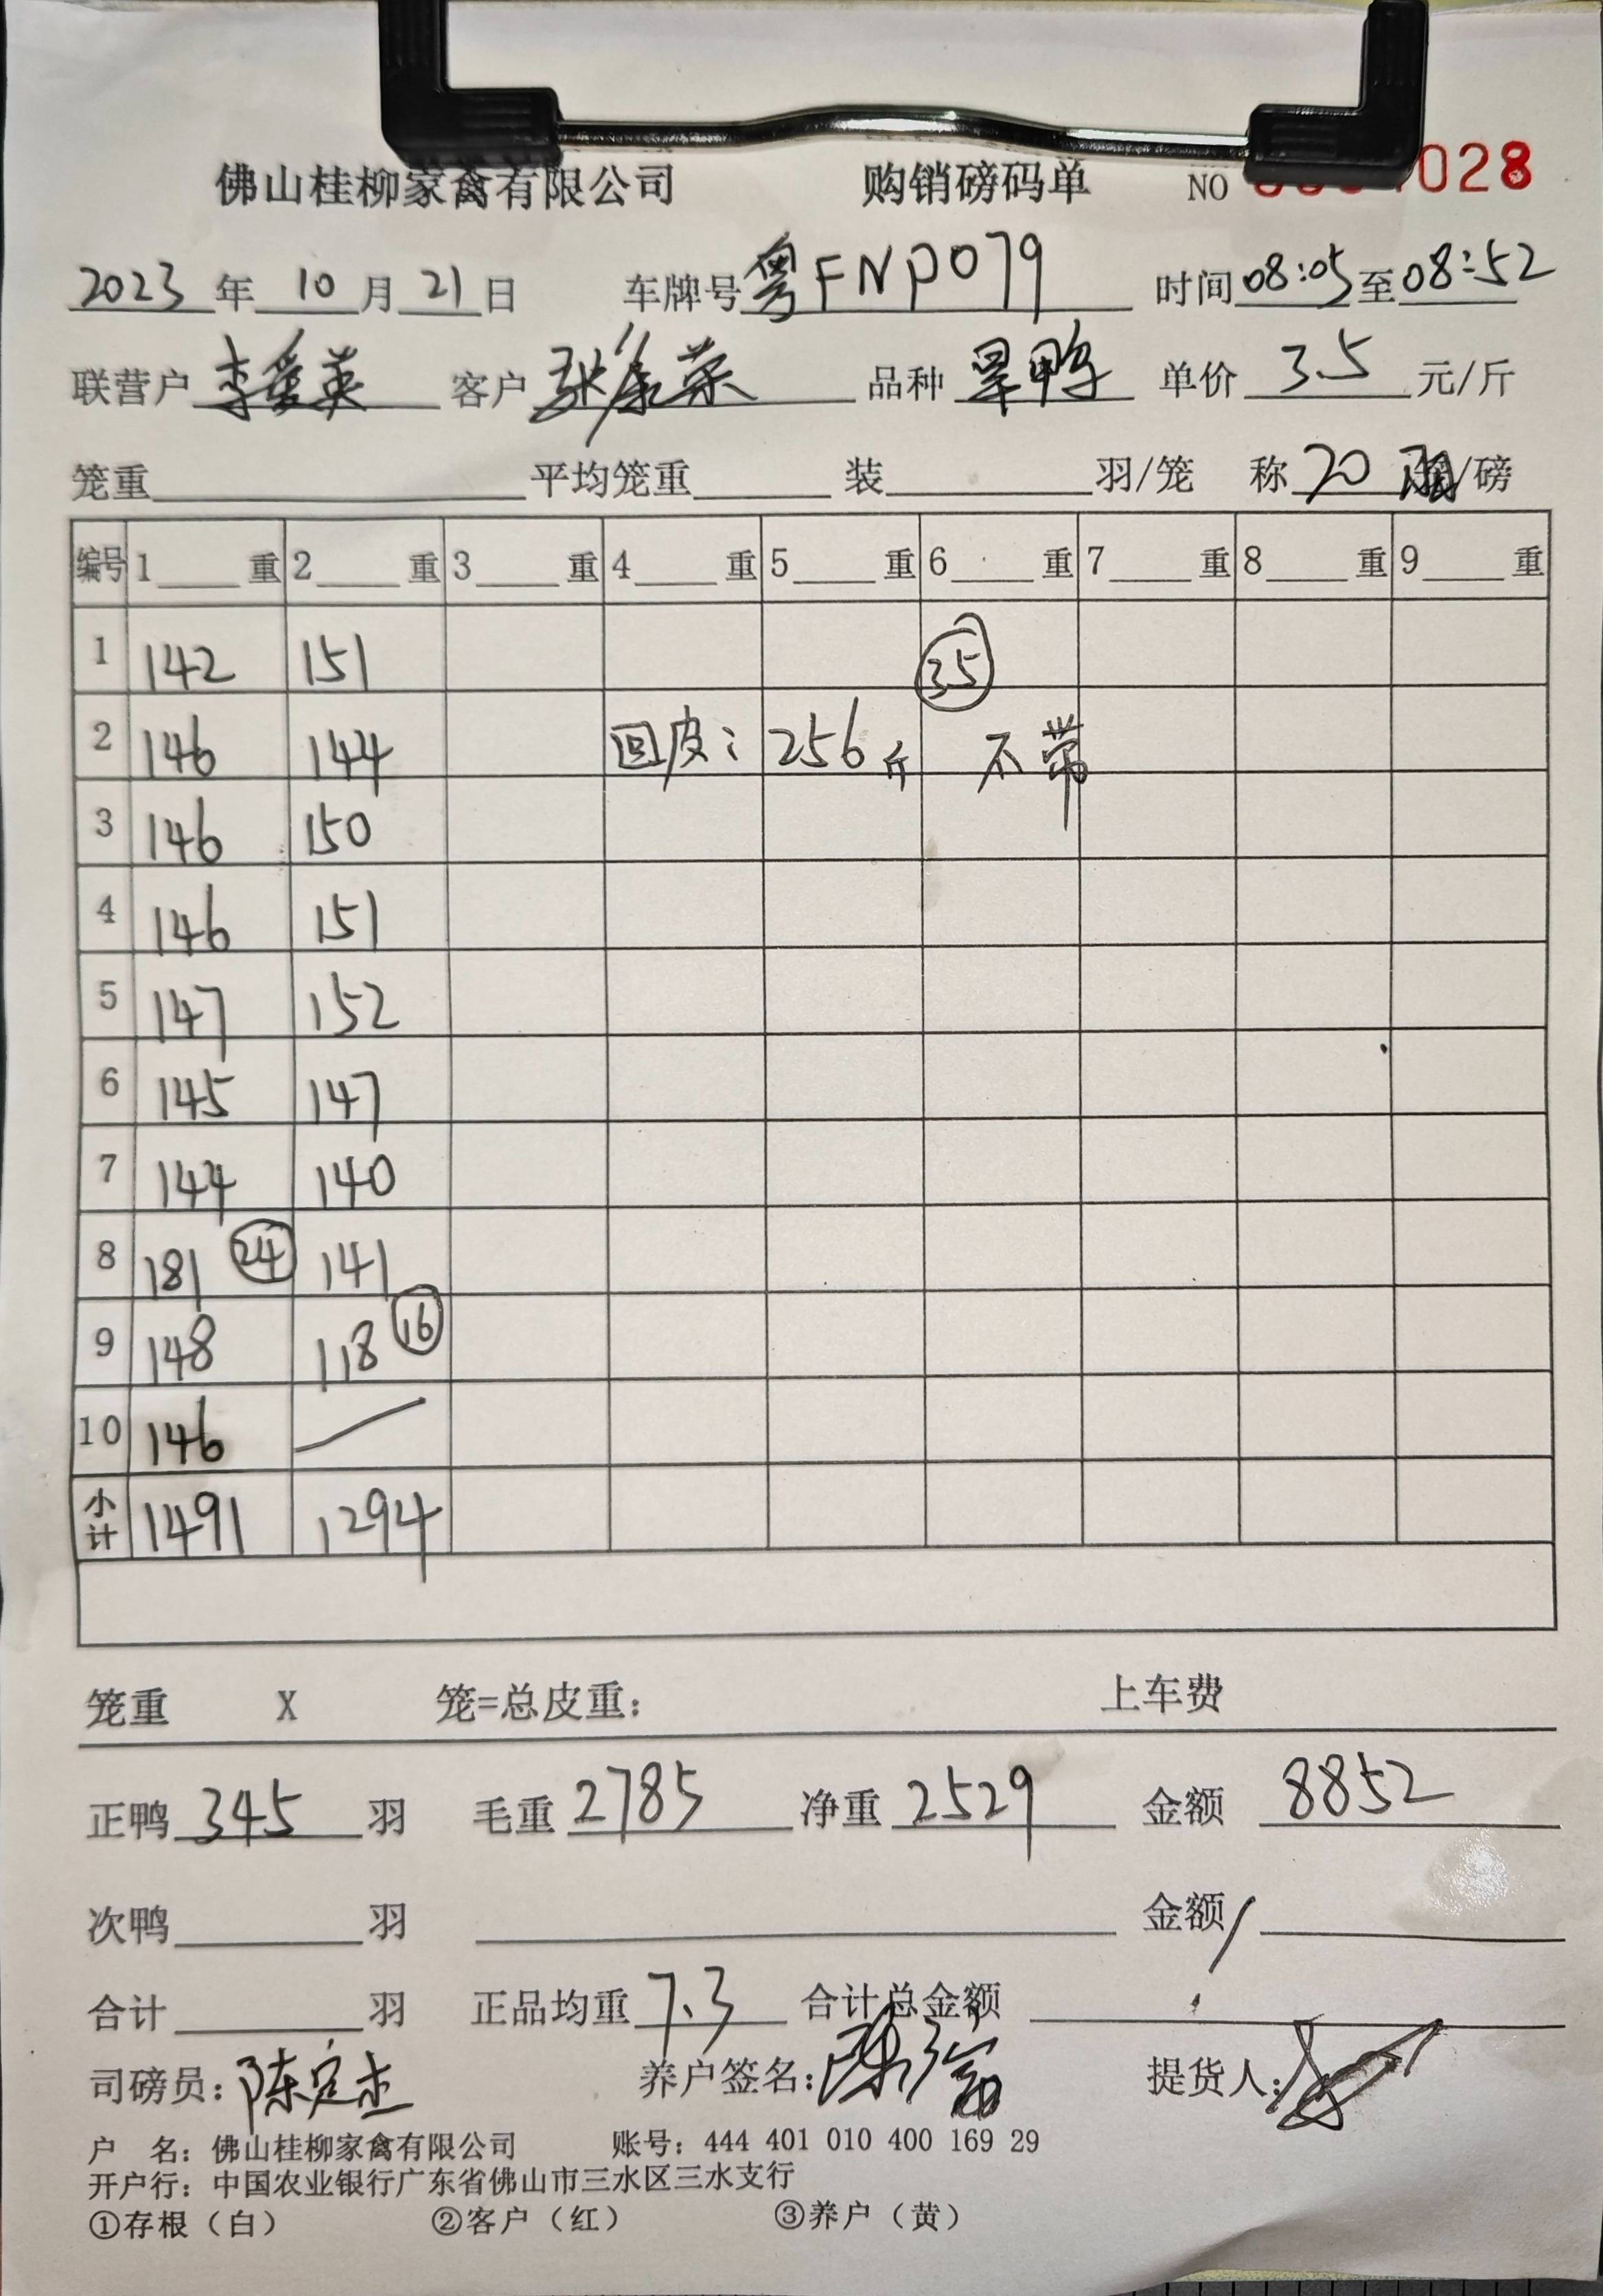 佛山桂柳家禽有限公司 购销磅码单 NO 028
2023年10月21日 车牌号粤FNP079 时间08:05至08:52
联营户李爱英 客户 张荣 品种旱鸭 单价3.5元/斤
笼重 平均笼重 装 羽/笼 称20羽/磅
编号 1 重 2 重 3 重 4 重 5 重 6 重 7 重 8 重 9 重
1 142 151 35
2 146 144 回皮:256斤 不带
3 146 150
4 146 151
5 147 152
6 145 147
7 144 140
8 181 24 141
9 148 118 16
10 146
小计 1491 1294
笼重 X 笼=总皮重: 上车费
正鸭345羽 毛重2785 净重2529 金额8852
次鸭 羽 金额
合计 羽 正品均重7.3 合计总金额
司磅员:陈定杰 养户签名:陈 提货人:
户 名: 佛山桂柳家禽有限公司 账号: 444 401 010 400 169 29
开户行: 中国农业银行广东省佛山市三水区三水支行
①存根(白) ②客户(红) ③养户(黄)